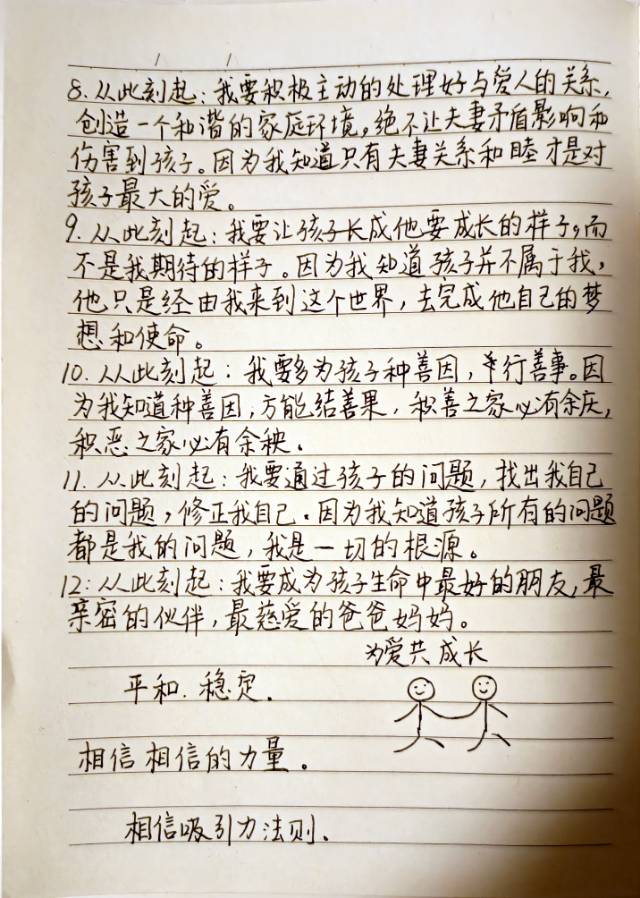 8.从此刻起：我要积极主动的处理好与爱人的关系，
创造一个和谐的家庭环境，绝不让夫妻矛盾影响和
伤害到孩子。因为我知道只有夫妻关系和睦才是对
孩子最大的爱。
9.从此刻起：我要让孩子长成他要成长的样子，而
不是我期待的样子。因为我知道孩子并不属于我，
他只是经由我来到这个世界，去完成他自己的梦
想和使命。
10.从此刻起：我要多为孩子种善因，行善事。因
为我知道种善因，方能结善果，积善之家必有余庆，
积恶之家必有余秧.
11.从此刻起：我要通过孩子的问题，找出我自己
的问题，修正我自己.因为我知道孩子所有的问题
都是我的问题，我是一切的根源。
12:从此刻起：我要成为孩子生命中最好的朋友，最
亲密的伙伴，最慈爱的爸爸妈妈。
为爱共成长
平和.稳定.
相信相信的力量。
相信吸引力法则.